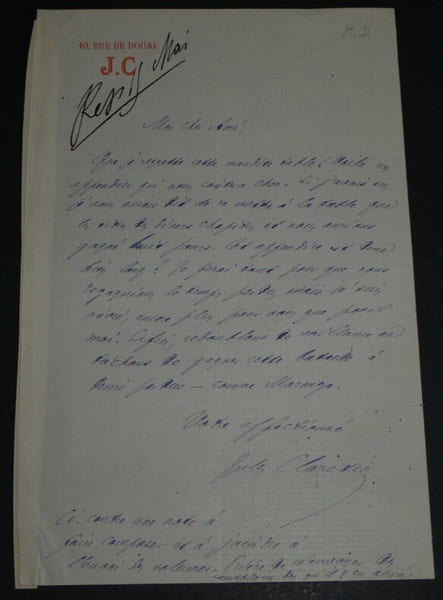 M.D
10, RUE DE DOUAI
J.C
Rep Mai
Mon cher Ami,
Que je regrette cette maudite table! Voilà un
appendice qui nous coûtera cher. Si j'avais su,
je vous aurais dit de ne mettre à la table que
les titres des divers chapitres et nous aurions
gagné huit jours. Cet appendice est donc
très long? Je ferai tout pour que nous
regagnions le temps perdu mais je suis
navré, encore plus pour vous que pour
moi. Enfin, redoublons de vaillance et
tâchons de gagner cette bataille à
demi perdue — comme Marengo.
Votre affectionné
Jules Claretie
Ci-contre une note à
faire composer et à joindre à
l'envoi des volumes. Prière de m'envoyer des